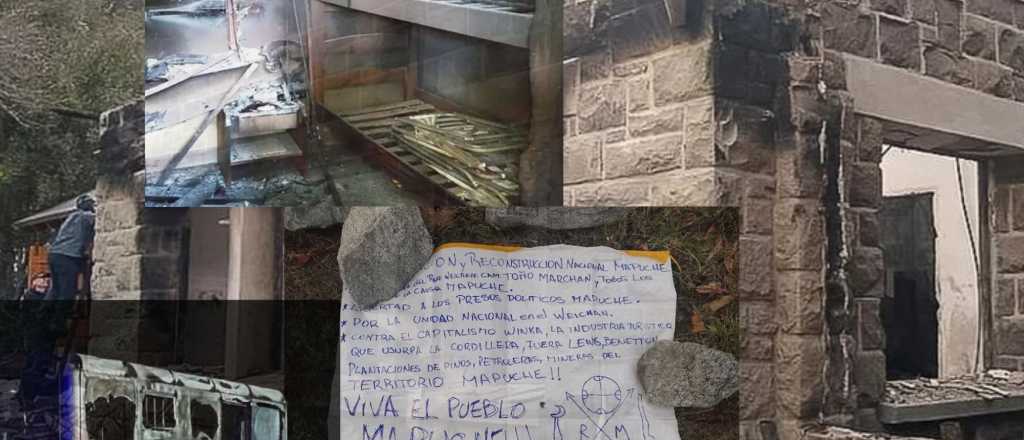 ON y RECONSTRUCCION NACIONAL MAPUCHE
POR WEICHAFE CAM TOÑO MARCHAN y TODOS LOS
LA CAUSA MAPUCHE.
* LIBERTAD A LOS PRESOS POLITICOS MAPUCHE.
* POR LA UNIDAD NACIONAL en el WEICHAN.
* CONTRA EL CAPITALISMO WINKA, LA INDUSTRIA TURISTICA
QUE USURPA LA CORDILLERA, FUERA LEWIS, BENETTON
PLANTACIONES DE PINOS, PETROLERAS, MINERAS DEL
TERRITORIO MAPUCHE!!
VIVA EL PUEBLO
MAPUCHE!!!
R M